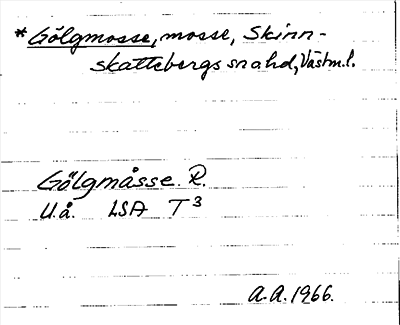 * Gölgmosse, mosse, Skinn-
skattebergs snahd, Västm.l.
Gölgmåsse. R.
U.å. LSA T³
A.A. 1966.